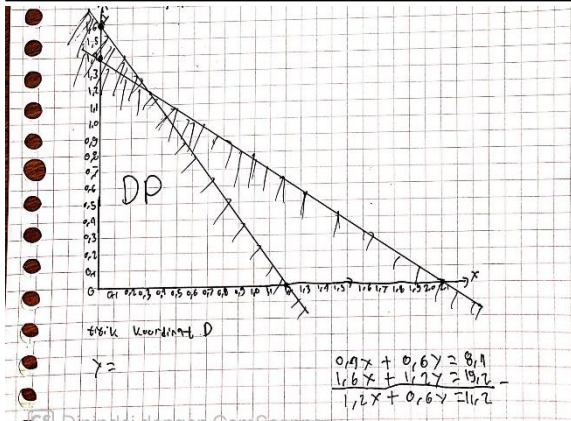 y
1,6
1,5
1,4
1,3
1,2
1,1
1,0
0,9
0,8
0,7
0,6
0,5
0,4
0,3
0,2
0,1
DP
0 0,1 0,2 0,3 0,4 0,5 0,6 0,7 0,8 0,9 1,0 1,1 1,3 1,4 1,5 1,6 1,7 1,8 1,9 2,0 2,1 x
titik koordinat D
y=
0,4x + 0,6y = 8,4
1,6x + 1,2y = 19,2 -
1,2x + 0,6y = 11,2